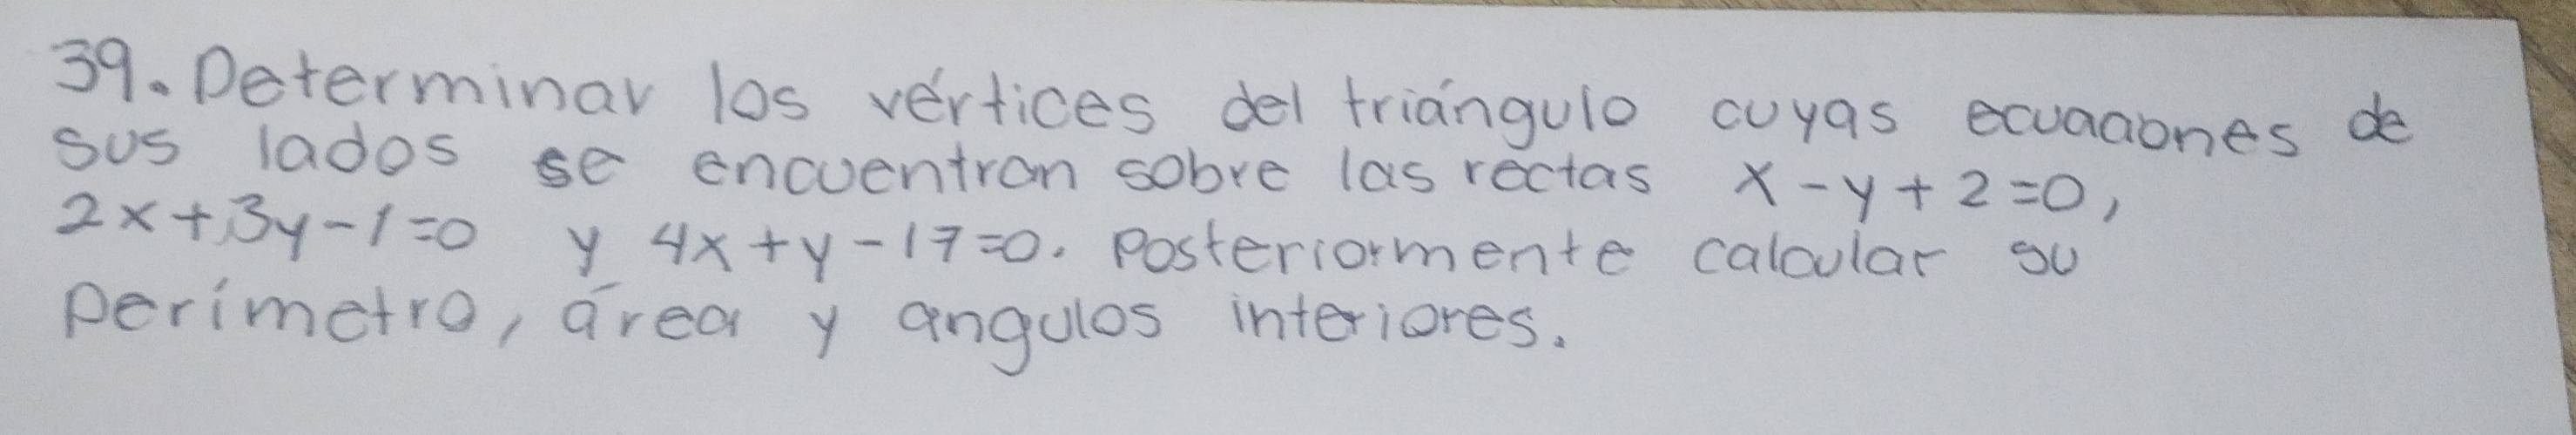 39. Determinar los vértices del triángulo cuyas ecuaciones de
sus lados se encuentran sobre las rectas x-y+2=0,
2x+3y-1=0 y 4x+y-17=0. Posteriormente calcular su
perímetro, área y angulos interiores.